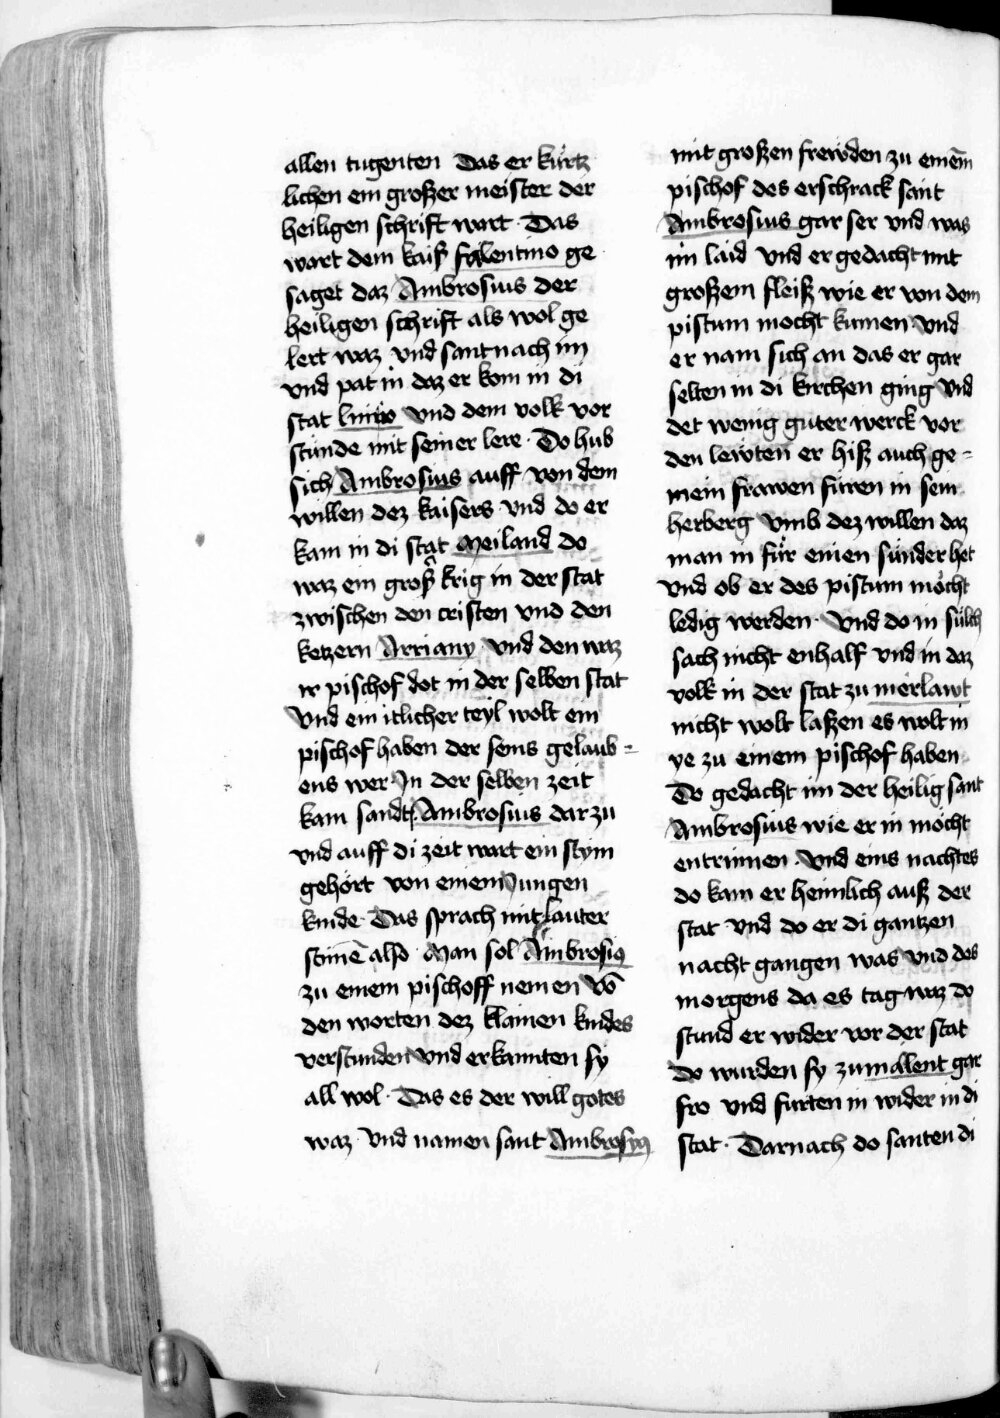 allen tugenten Das er kürtz
lichen ein großer meister der
heiligen schrift wart · Das
wart dem kaiß falentino ge
saget daz Ambrosius der
heiligen schrift als wol ge
lert waz vnd sant nach im
vnd pat in daz er kom in di
stat vnd dem volk vor
stünde mit seiner lere · Do hub
sich Ambrosius auff von dem
willen dez kaisers vnd do er
kam in di stat Meiland do
waz ein groß krig in der stat
zwischen den cristen vnd den
ketzern Arriany vnd den waz
ir pischof dot in der selben stat
Vnd ein itlicher teyl wolt ein
pischof haben der seins gelaub =
ens wer In der selben zeit
kam sandt Ambrosius dar zu
vnd auff di zeit wart ein stym
gehört von einem Jungen
kinde · Das sprach mit lauter
stime͞ also · Man sol Ambrosiọ
zu einem pischoff nemen Vo͞
den worten dez klainen kindes
verstunden vnd erkannten sy
all wol · Das es der will gotes
waz · Vnd namen sant Ambrosyọ
mit großen frewden zu eine͞m
pischof des erschrack sant
Ambrosius gar ser vnd was
im laid vnd er gedacht mit
großem fleiß wie er von dem
pistum mocht kumen · Vnd
er nam sich an das er gar
selten in di kirchen ging Vnd
det wenig guter werck vor
den lewten er hiß auch ge =
mein frawen füren in sein
herberg vmb dez willen daz
man in für einen sünder het
Vnd ob er des pistum möcht
ledig werden · Vnd do in sülch
sach nicht enhalf vnd in daz
volk in der stat zu merlawt
nicht wolt laßen es wolt in
ye zu einem pischof haben
Do gedacht im der heilig sant
Ambrosius wie er in möcht
entrinnen · Vnd eins nachtes
do kam er heimlich auß der
stat vnd do er di gantzen
nacht gangen was vnd des
morgens da es tag waz do
stund er wider vor der stat
Do wurden sy zu malent gar
fro vnd furten in wider in di
stat · Darnach do santen di